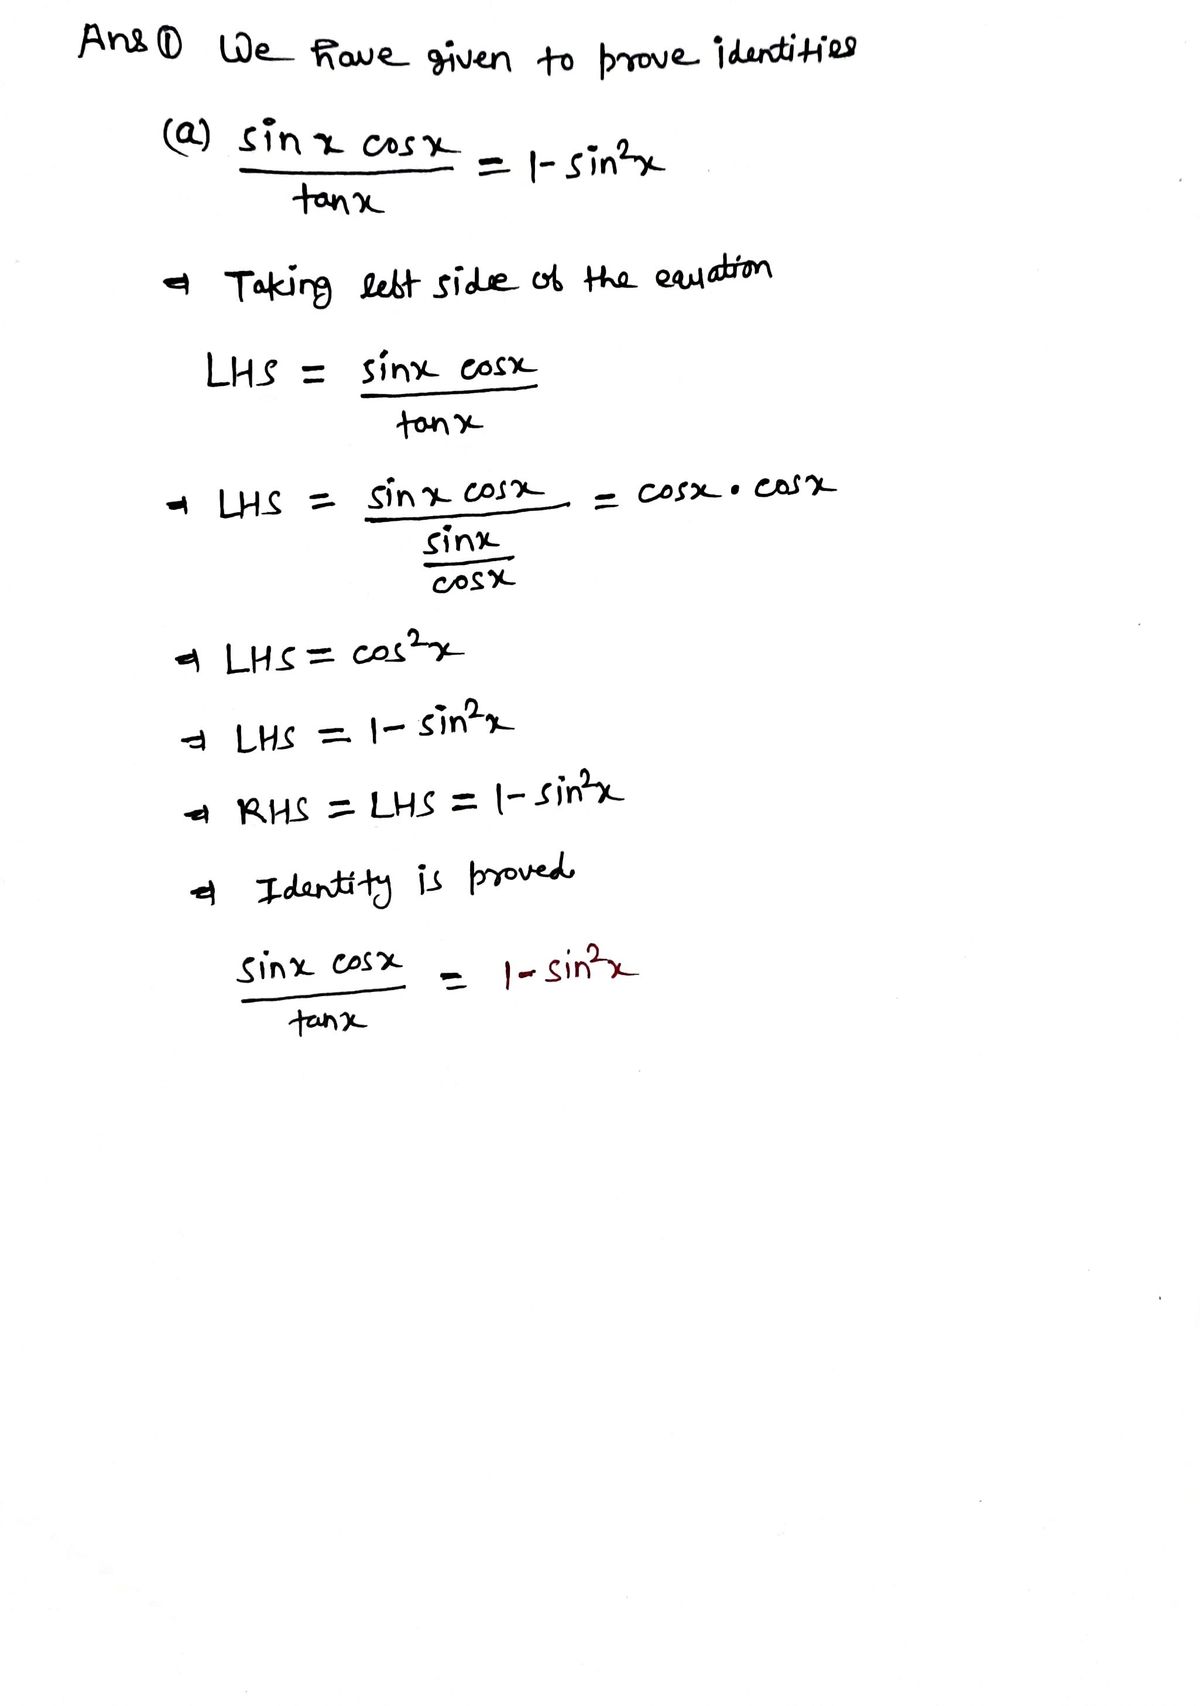 Ans ① We have given to prove identities
(a) sin x cos x / tan x = 1 - sin²x
⇒ Taking left side of the equation
LHS = sinx cosx / tan x
⇒ LHS = sin x cos x / (sinx / cosx) = cosx • cosx
⇒ LHS = cos²x
⇒ LHS = 1 - sin²x
⇒ RHS = LHS = 1 - sin²x
⇒ Identity is proved
sinx cosx / tanx = 1 - sin²x